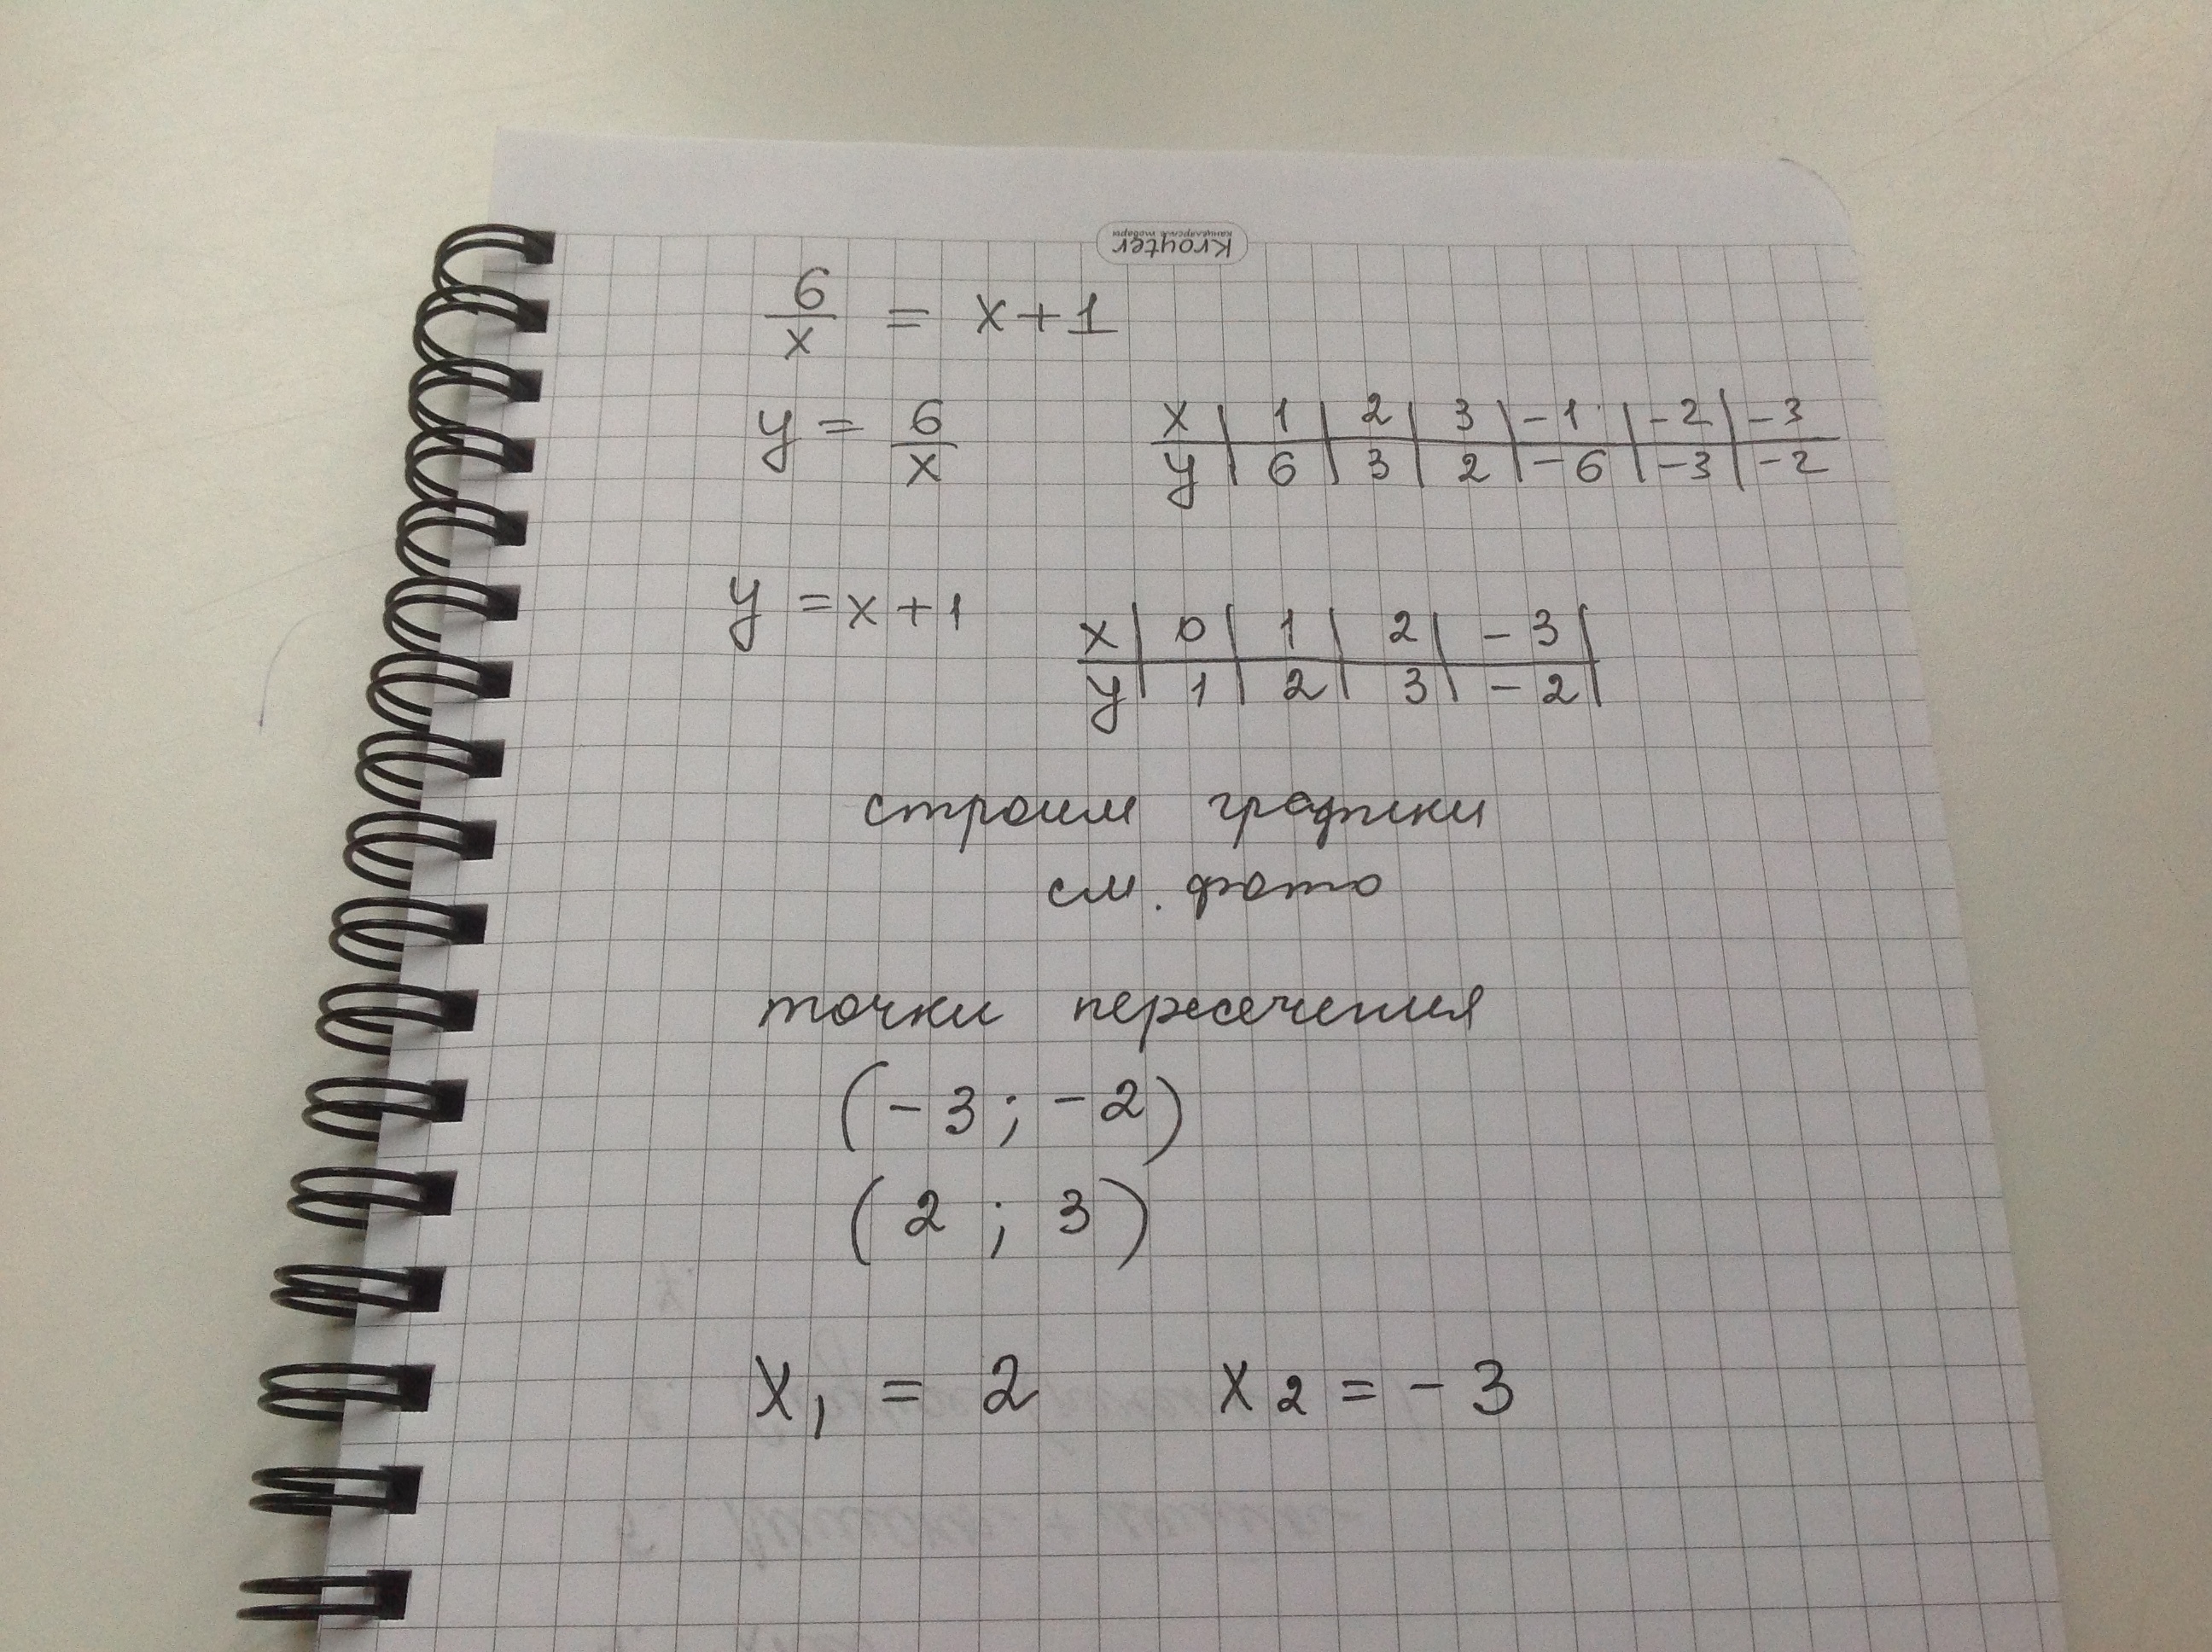 Kroyter
канцелярские товары
6/x = x+1
y = 6/x
x | 1 | 2 | 3 | -1 | -2 | -3
y | 6 | 3 | 2 | -6 | -3 | -2
y = x+1
x | 0 | 1 | 2 | -3 |
y | 1 | 2 | 3 | -2 |
строим графики
см. фото
точки пересечения
(-3 ; -2)
(2 ; 3)
x₁ = 2 x₂ = -3